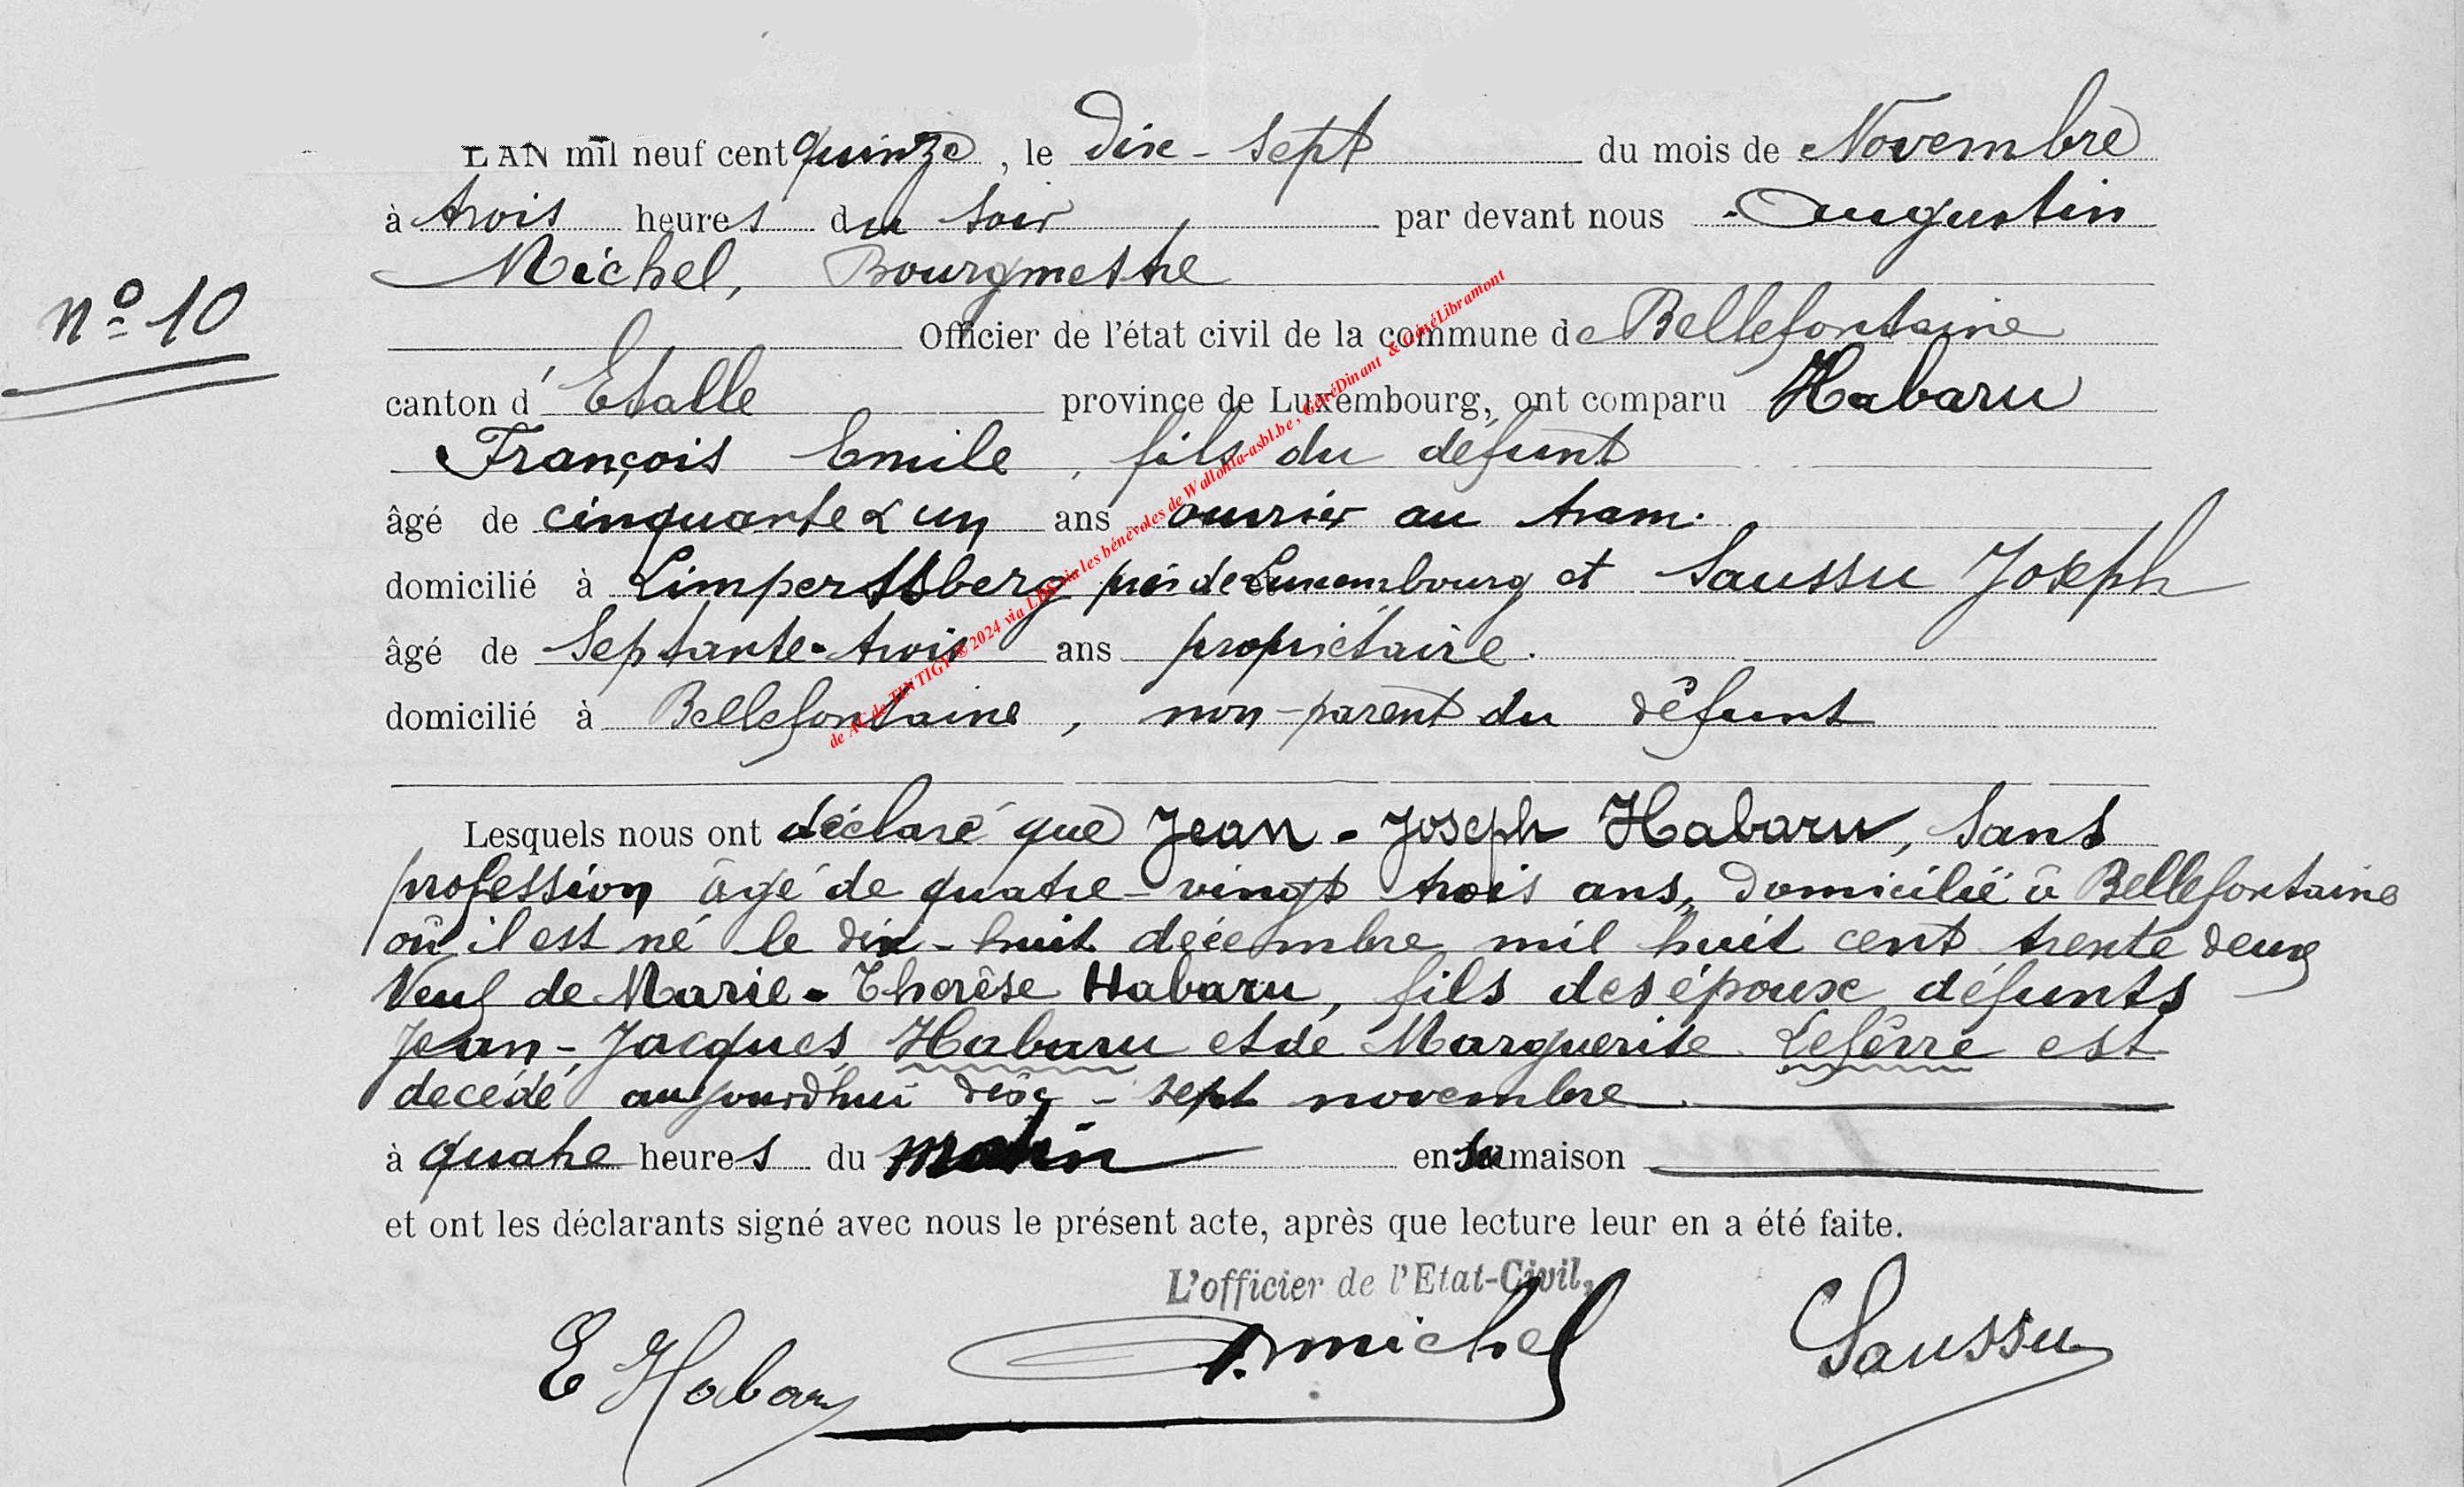 L'AN mil neuf cent quinze, le dix-sept du mois de Novembre
à trois heures du soir par devant nous Augustin
Michel, Bourgmestre
n° 10
Officier de l'état civil de la commune de Bellefontaine
canton d'Etalle province de Luxembourg, ont comparu Habaru
François Emile, fils du défunt
âgé de cinquante & un ans ouvrier au tram.
domicilié à Limpertsberg près de Luxembourg et Saussu Joseph
âgé de Septante-trois ans propriétaire.
domicilié à Bellefontaine, non-parent du défunt
de AC de TINTIGY © 2024 via LDS via les bénévoles de Wallonia-asbl.be, GénéDinant & GénéLibramont
Lesquels nous ont déclaré que Jean-Joseph Habaru, sans
profession âgé de quatre-vingt trois ans, domicilié à Bellefontaine
où il est né le dix-huit décembre mil huit cent trente deux
Veuf de Marie-Thérèse Habaru, fils des époux défunts
Jean-Jacques Habaru et de Marguerite Lefèvre est
décédé aujourd'hui dix-sept novembre
à quatre heures du matin en sa maison
et ont les déclarants signé avec nous le présent acte, après que lecture leur en a été faite.
L'officier de l'Etat-Civil,
E Habaru A. Michel Saussu